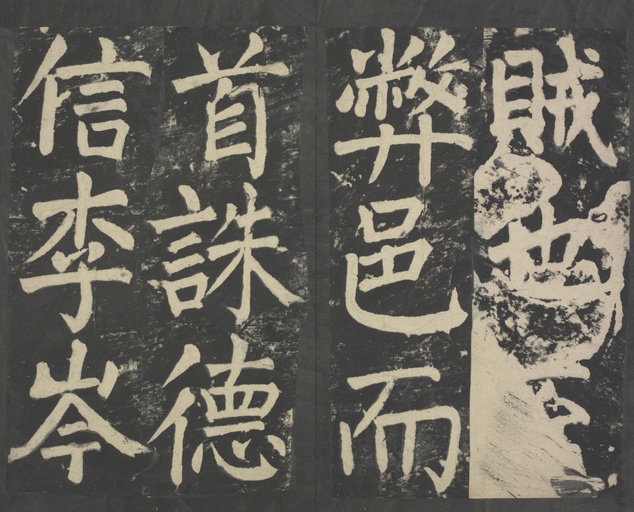 賊也
弊邑而
首誅德
信李岑